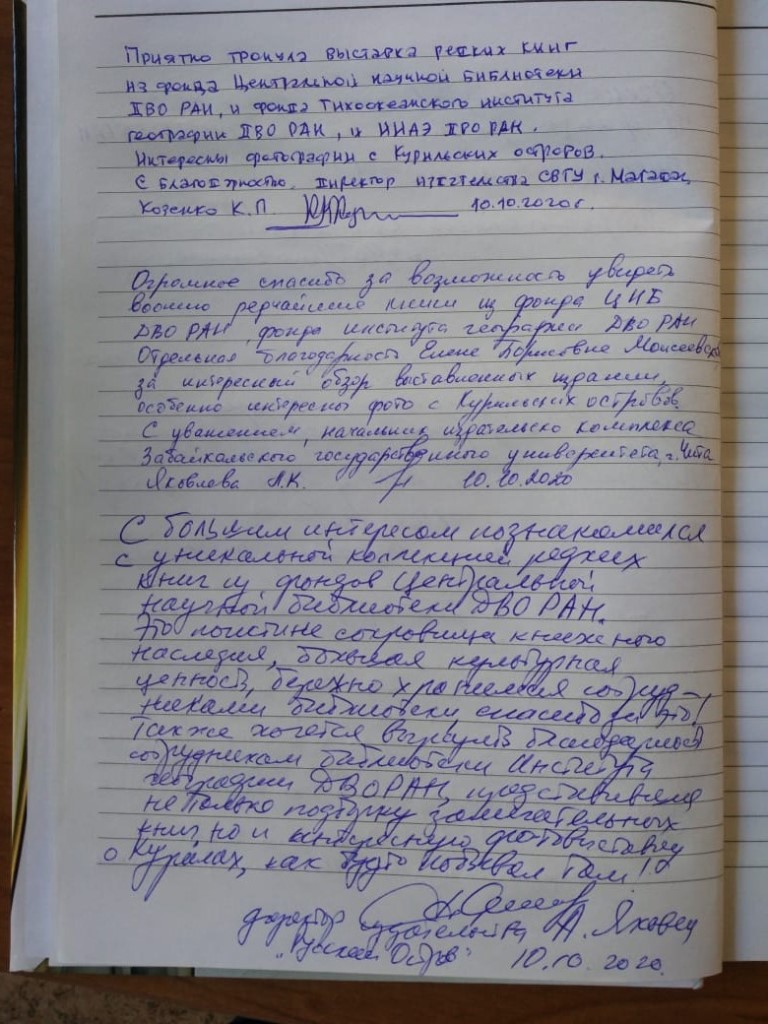 Приятно тронула выставка редких книг
из фонда Центральной научной библиотеки
ДВО РАН, и фонда Тихоокеанского института
географии ДВО РАН, и ИИАЭ ДВО РАН.
Интересны фотографии с Курильских островов.
С благодарностью, директор издательства СВГУ г. Магадан,
Козенко К.П. 10.10.2020г.
Огромное спасибо за возможность увидеть
воочию редчайшие книги из фонда ЦНБ
ДВО РАН, фонда института географии ДВО РАН
Отдельная благодарность Елене Борисовне Моисеевской
за интересный обзор выставленных изданий,
особенно интересны фото с Курильских островов.
С уважением, начальник издательско комплекса
Забайкальского государственного университета, г. Чита
Яковлева Л.К. 10.10.2020
С большим интересом познакомился
с уникальной коллекцией редких
книг из фондов Центральной
научной библиотеки ДВО РАН.
Это поистине сокровища книжного
наследия, большая культурная
ценность, бережно хранимая сотруд-
никами библиотеки спасибо за это!
Также хочется выразить благодарность
сотрудникам библиотеки Института
географии ДВО РАН, представившей
не только подборку замечательных
книг, но и интересную фотовыставку
о Курилах, как будто побывал там!
директор издательства А. Яковец
"Русский Остров" 10.10.2020.